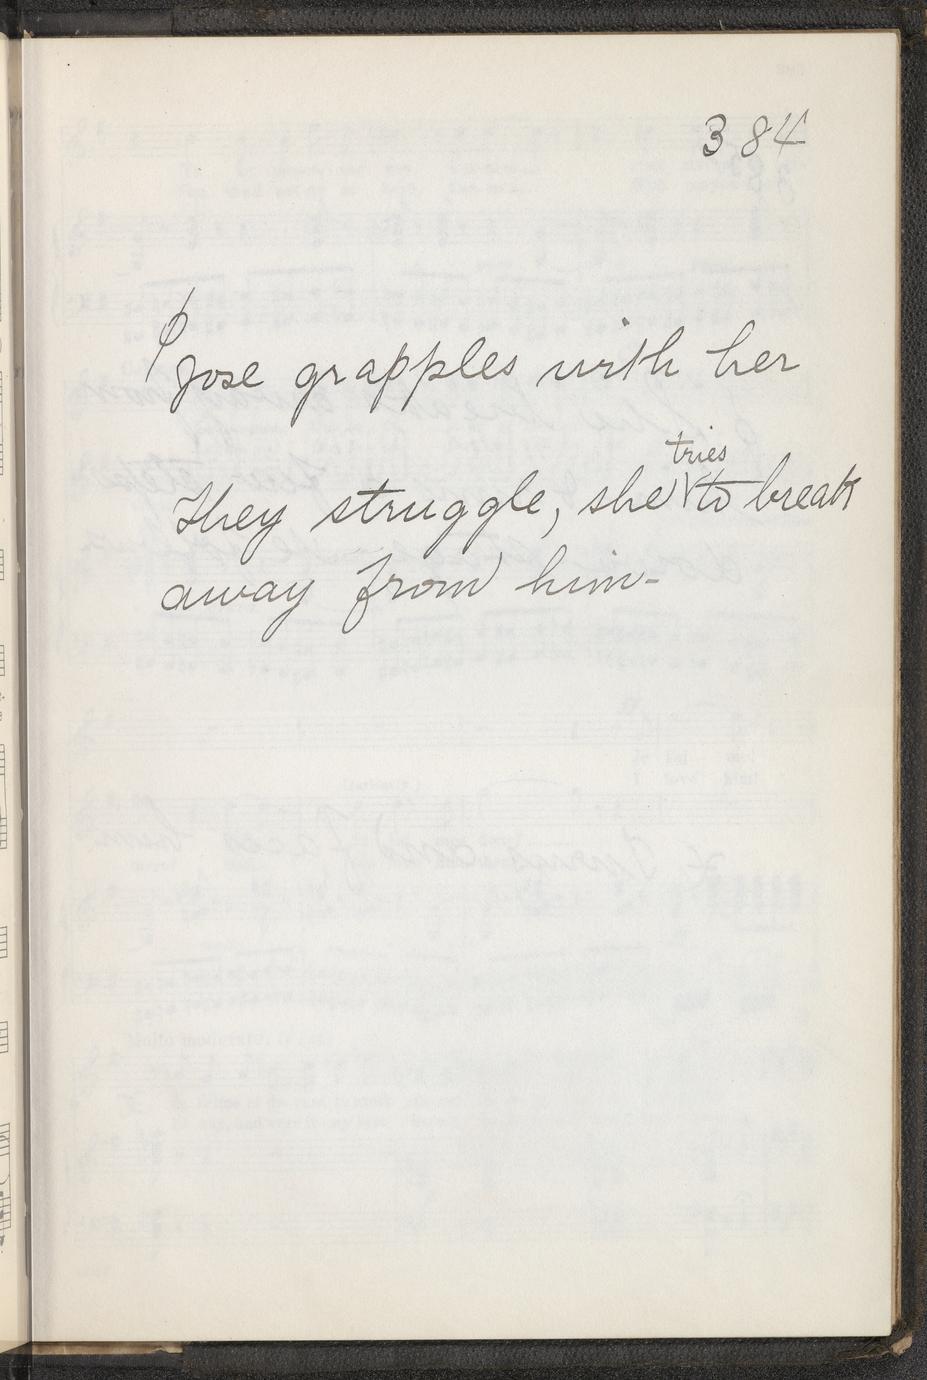 384
Jose grapples with her
tries
They struggle, she to break
away from him-